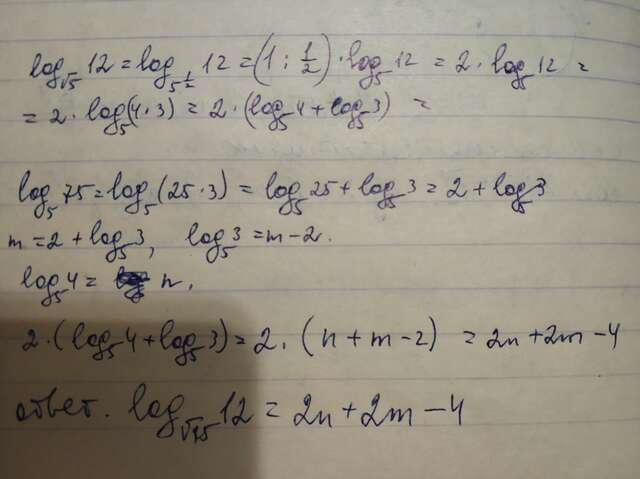 log_√5 12 = log_5^(1/2) 12 = (1 : 1/2) · log_5 12 = 2 · log_5 12 =
= 2 · log_5 (4 · 3) = 2 · (log_5 4 + log_5 3) =
log_5 75 = log_5 (25 · 3) = log_5 25 + log_5 3 = 2 + log_5 3
m = 2 + log_5 3, log_5 3 = m - 2.
log_5 4 = n,
2 · (log_5 4 + log_5 3) = 2 · (n + m - 2) = 2n + 2m - 4
ответ. log_√5 12 = 2n + 2m - 4